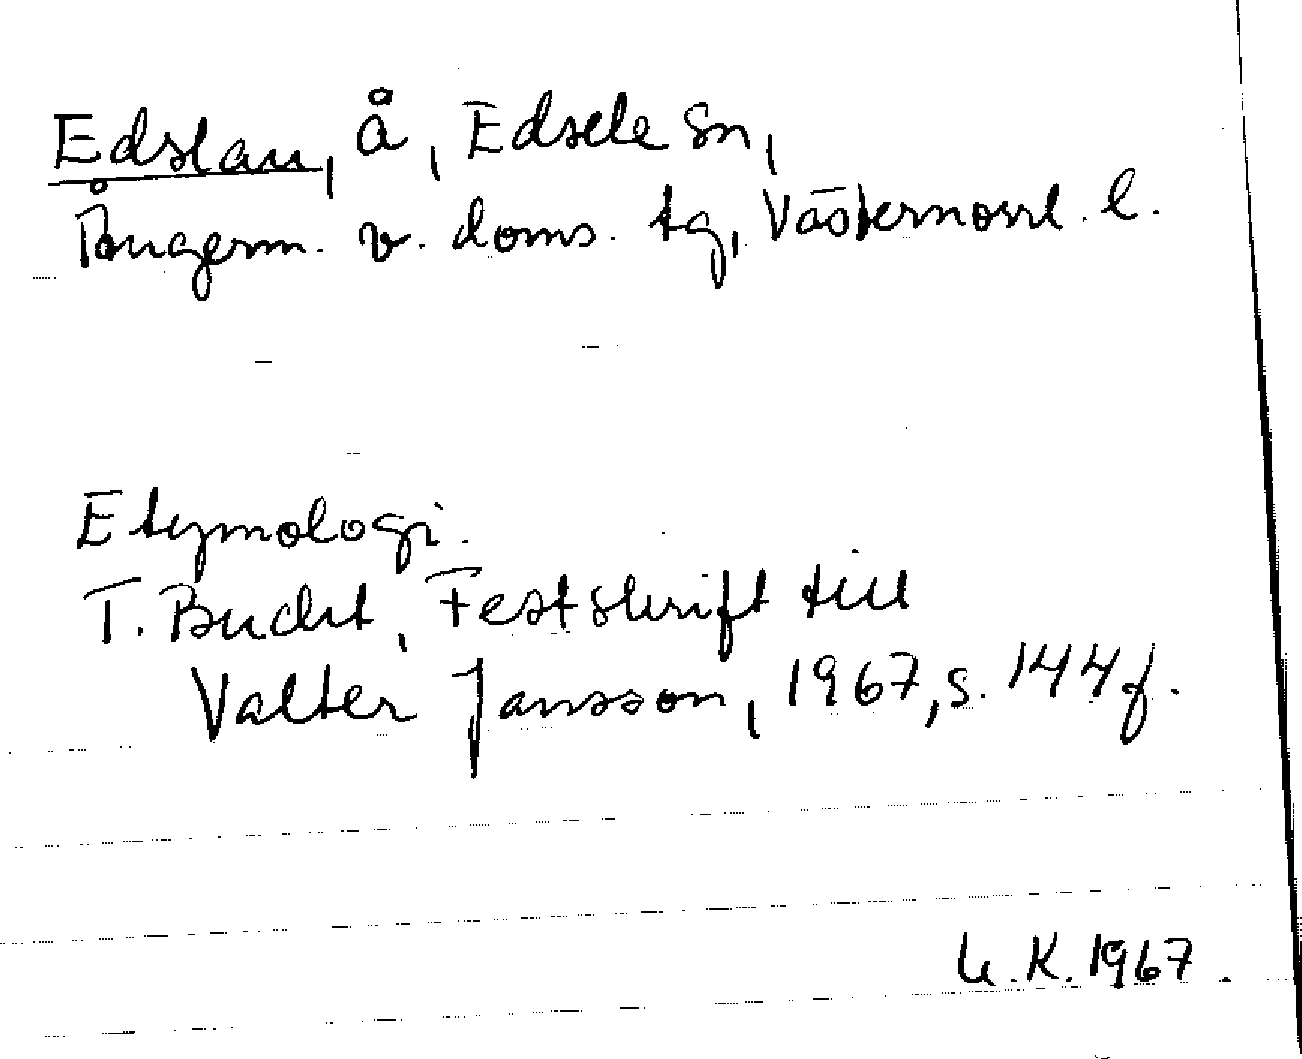 Edslan, å, Edsele sn,
Ångerm. v. doms. tg, Västernorrl. l.
Etymologi.
T. Bucht, Festskrift till
Valter Jansson, 1967, s. 144 f.
U.K. 1967.